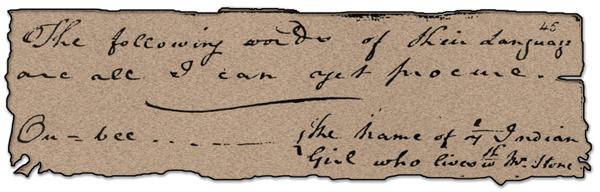 45
The following words of their Language
are all I can yet procure.
Ou=bee . . . . . . . {the Name of yᵉ Indian
Girl who lives wᵗʰ Mʳ Stone